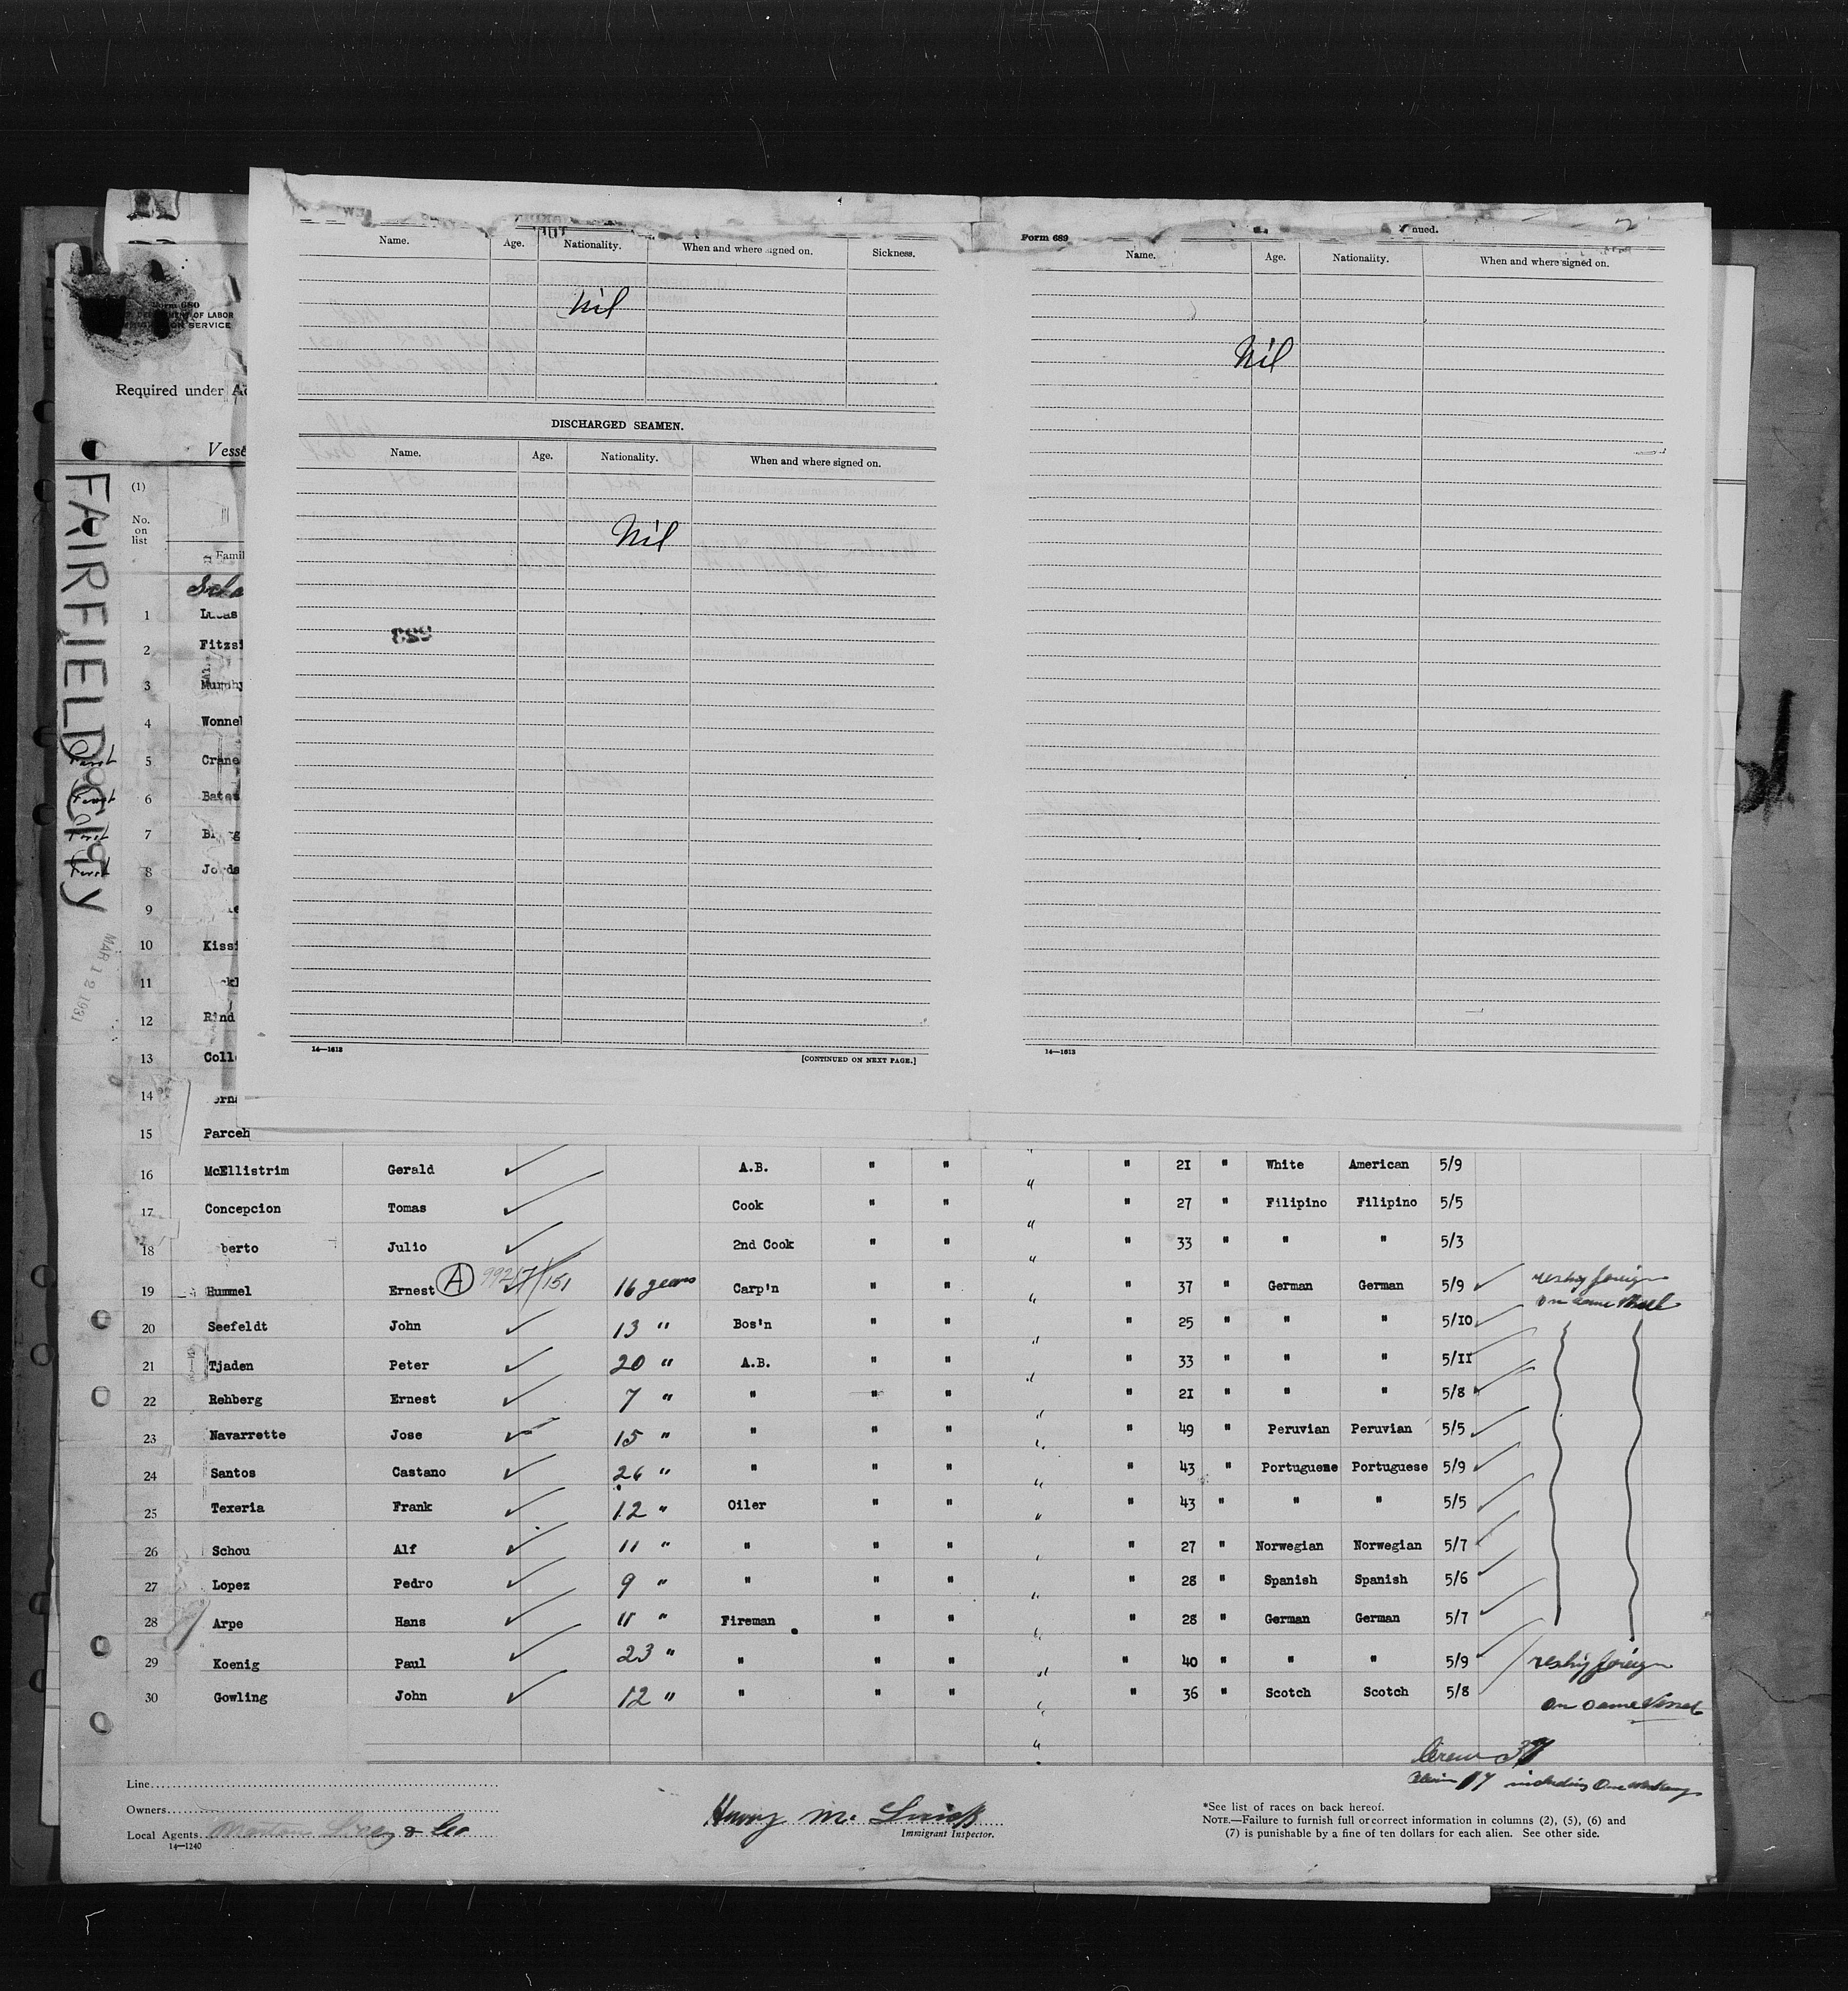 Form 689
nued.
Name. Age. Nationality. When and where signed on. Sickness.
Nil
DISCHARGED SEAMEN.
Name. Age. Nationality. When and where signed on.
Nil
14—1613
[CONTINUED ON NEXT PAGE.]
Name. Age. Nationality. When and where signed on.
Nil
14—1613
Form 680
OF LABOR
SERVICE
Required under
Vesse
FAIRFIELD City
MAR 12 1931
(1)
No. on list
Famil
1 Lucas
2 Fitzsi
3 Murphy
4 Wonnel
First 5 Crane
First 6 Bates
First 7
First 8 Jorda
9
10 Kissi
11
12 Rind
13 Colle
14
15 Parceh
16 McEllistrim Gerald A.B. " " " " 21 " White American 5/9
17 Concepcion Tomas Cook " " " " 27 " Filipino Filipino 5/5
18 berto Julio 2nd Cook " " " " 33 " " " 5/3
19 Hummel Ernest A 99217/151 16 years Carp'n " " " " 37 " German German 5/9 reship foreign
on same vessel
20 Seefeldt John 13 " Bos'n " " " " 25 " " " 5/10
21 Tjaden Peter 20 " A.B. " " " " 33 " " " 5/11
22 Rehberg Ernest 7 " " " " " " 21 " " " 5/8
23 Navarrette Jose 15 " " " " " " 49 " Peruvian Peruvian 5/5
24 Santos Castano 26 " " " " " " 43 " Portuguese Portuguese 5/9
25 Texeria Frank 12 " Oiler " " " " 43 " " " 5/5
26 Schou Alf 11 " " " " " " 27 " Norwegian Norwegian 5/7
27 Lopez Pedro 9 " " " " " " 28 " Spanish Spanish 5/6
28 Arpe Hans 11 " Fireman " " " " 28 " German German 5/7
29 Koenig Paul 23 " " " " " " 40 " " " 5/9 reship foreign
30 Gowling John 12 " " " " " " 36 " Scotch Scotch 5/8
on same vessel
Crew 37
17 including One
Line
Owners
Local Agents & Co
14—1240
Immigrant Inspector.
*See list of races on back hereof.
NOTE.—Failure to furnish full or correct information in columns (2), (5), (6) and
(7) is punishable by a fine of ten dollars for each alien. See other side.